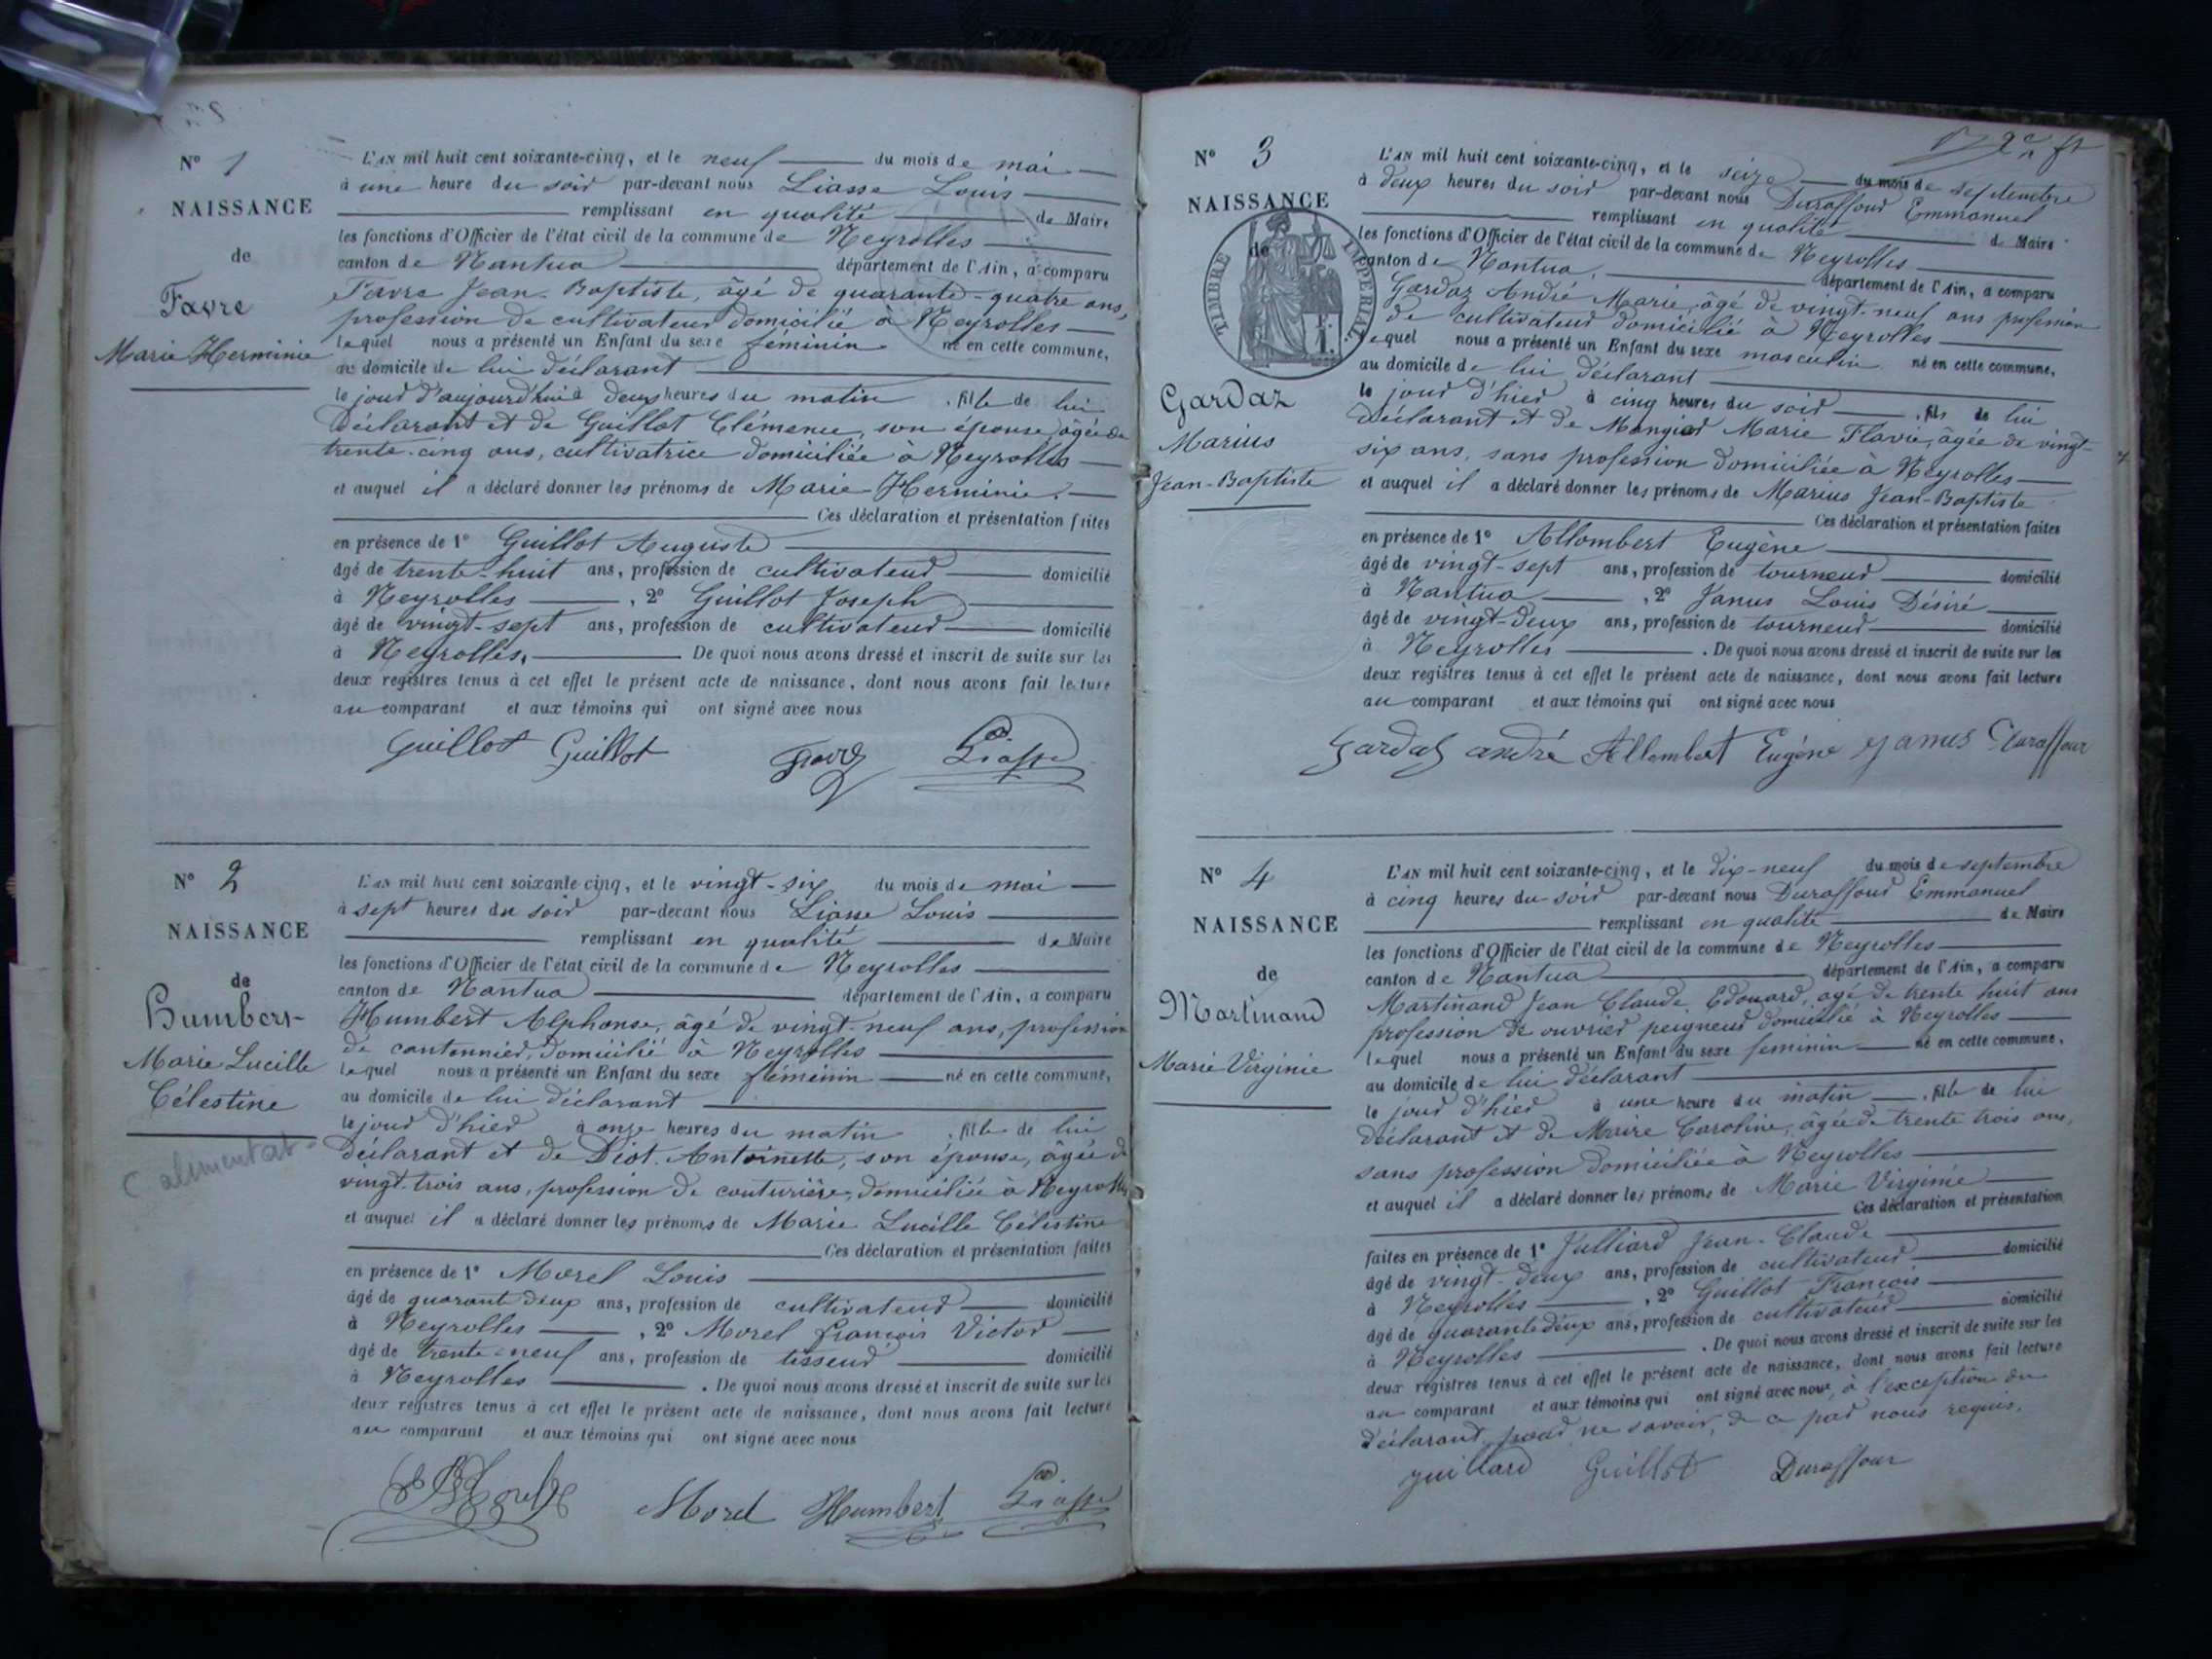 N° 1
NAISSANCE
de
Favre
Marie Herminie
L'AN mil huit cent soixante-cinq, et le neuf du mois de mai
à une heure du soir par-devant nous Liasse Louis
remplissant en qualité de Maire
les fonctions d'Officier de l'état civil de la commune de Neyrolles
canton de Nantua département de l'Ain, a comparu
Favre Jean-Baptiste, âgé de quarante-quatre ans,
profession de cultivateur domicilié à Neyrolles
lequel nous a présenté un Enfant du sexe féminin né en cette commune,
au domicile de lui déclarant
le jour d'aujourd'hui à deux heures du matin, fille de lui
déclarant et de Guillot Clémence, son épouse, âgée de
trente-cinq ans, cultivatrice domiciliée à Neyrolles
et auquel il a déclaré donner les prénoms de Marie Herminie.
Ces déclaration et présentation faites
en présence de 1° Guillot Auguste
âgé de trente-huit ans, profession de cultivateur domicilié
à Neyrolles, 2° Guillot Joseph
âgé de vingt-sept ans, profession de cultivateur domicilié
à Neyrolles. De quoi nous avons dressé et inscrit de suite sur les
deux registres tenus à cet effet le présent acte de naissance, dont nous avons fait lecture
au comparant et aux témoins qui ont signé avec nous
Guillot Guillot Favre Liasse
N° 2
NAISSANCE
de
Humbert
Marie Lucille
Célestine
C alimentat
L'AN mil huit cent soixante-cinq, et le vingt-six du mois de mai
à sept heures du soir par-devant nous Liasse Louis
remplissant en qualité de Maire
les fonctions d'Officier de l'état civil de la commune de Neyrolles
canton de Nantua département de l'Ain, a comparu
Humbert Alphonse, âgé de vingt-neuf ans, profession
de cantonnier, domicilié à Neyrolles
lequel nous a présenté un Enfant du sexe féminin né en cette commune,
au domicile de lui déclarant
le jour d'hier à onze heures du matin, fille de lui
déclarant et de Diot Antoinette, son épouse, âgée de
vingt-trois ans, profession de couturière, domiciliée à Neyrolles
et auquel il a déclaré donner les prénoms de Marie Lucille Célestine
Ces déclaration et présentation faites
en présence de 1° Morel Louis
âgé de quarante deux ans, profession de cultivateur domicilié
à Neyrolles, 2° Morel François Victor
âgé de trente-neuf ans, profession de tisseur domicilié
à Neyrolles. De quoi nous avons dressé et inscrit de suite sur les
deux registres tenus à cet effet le présent acte de naissance, dont nous avons fait lecture
au comparant et aux témoins qui ont signé avec nous
Morel Humbert Liasse
N° 3
NAISSANCE
de
TIMBRE IMPERIAL
Gardaz
Marius
Jean-Baptiste
L'AN mil huit cent soixante-cinq, et le seize du mois de septembre
à deux heures du soir par-devant nous Duraffour Emmanuel
remplissant en qualité de Maire
les fonctions d'Officier de l'état civil de la commune de Neyrolles
canton de Nantua. département de l'Ain, a comparu
Gardaz André Marie, âgé de vingt-neuf ans profession
de cultivateur domicilié à Neyrolles
lequel nous a présenté un Enfant du sexe masculin né en cette commune,
au domicile de lui déclarant
le jour d'hier à cinq heures du soir, fils de lui
déclarant et de Marie Flavie, âgée de vingt-
six ans, sans profession domiciliée à Neyrolles
et auquel il a déclaré donner les prénoms de Marius Jean-Baptiste
Ces déclaration et présentation faites
en présence de 1° Allombert Eugène
âgé de vingt-sept ans, profession de tourneur domicilié
à Nantua, 2° Janus Louis Désiré
âgé de vingt-deux ans, profession de tourneur domicilié
à Neyrolles. De quoi nous avons dressé et inscrit de suite sur les
deux registres tenus à cet effet le présent acte de naissance, dont nous avons fait lecture
au comparant et aux témoins qui ont signé avec nous
Gardaz andré Allombert Eugène Janus Duraffour
N° 4
NAISSANCE
de
Martinand
Marie Virginie
L'AN mil huit cent soixante-cinq, et le dix-neuf du mois de septembre
à cinq heures du soir par-devant nous Duraffour Emmanuel
remplissant en qualité de Maire
les fonctions d'Officier de l'état civil de la commune de Neyrolles
canton de Nantua département de l'Ain, a comparu
Martinand Jean Claude Edouard, agé de trente huit ans
profession de ouvrier peigneur domicilié à Neyrolles
lequel nous a présenté un Enfant du sexe feminin né en cette commune,
au domicile de lui déclarant
le jour d'hier à une heure du matin, fille de lui
déclarant et de Maire Caroline, âgée de trente trois ans,
sans profession domiciliée à Neyrolles
et auquel il a déclaré donner les prénoms de Marie Virginie
Ces déclaration et présentation
faites en présence de 1° Julliard Jean-Claude
âgé de vingt-deux ans, profession de cultivateur domicilié
à Neyrolles, 2° Guillot François
âgé de quarante deux ans, profession de cultivateur domicilié
à Neyrolles. De quoi nous avons dressé et inscrit de suite sur les
deux registres tenus à cet effet le présent acte de naissance, dont nous avons fait lecture
au comparant et aux témoins qui ont signé avec nous, à l'exception du
déclarant, pour ne savoir, de ce par nous requis.
juillard Guillot Duraffour